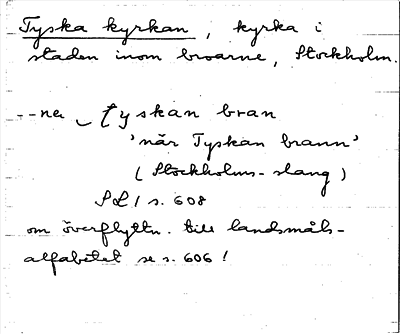 Tyska kyrkan, kyrka i
staden inom broarne, Stockholm.
--na ‿ tyskan bran
'när Tyskan brann'
(Stockholms-slang)
SL 1 s. 608
om överflyttn. till landsmåls-
alfabetet se s. 606!